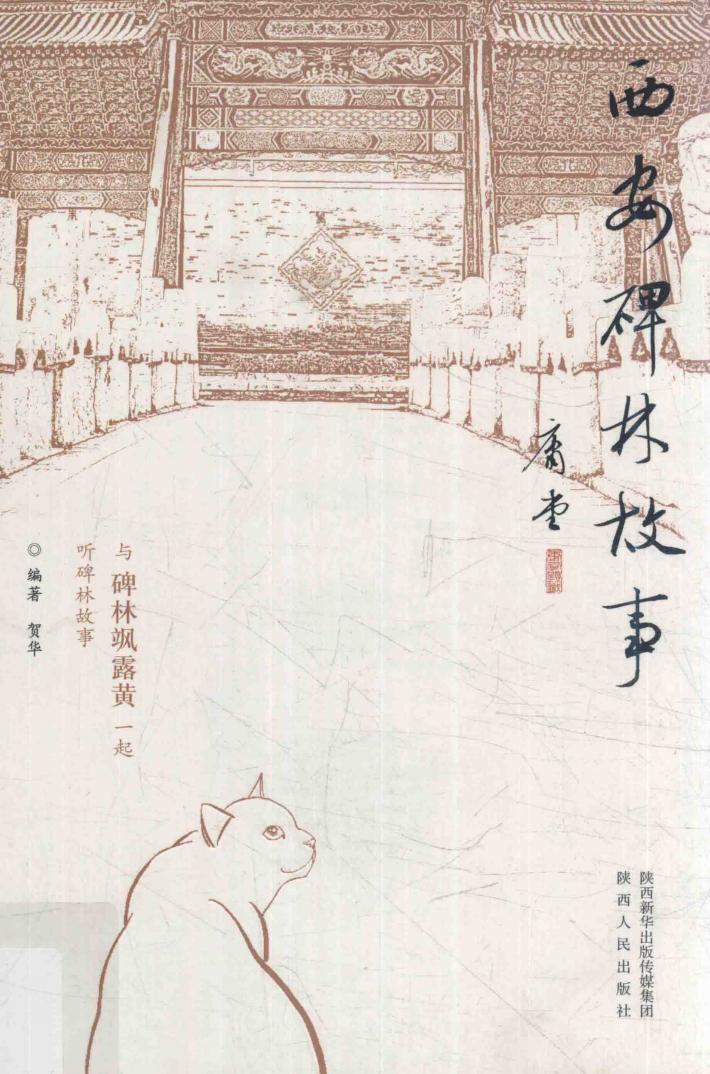 西安碑林故事
庸堂
与 碑林飒露黄 一起
听碑林故事
◎ 编著 贺华
陕西新华出版传媒集团
陕西人民出版社